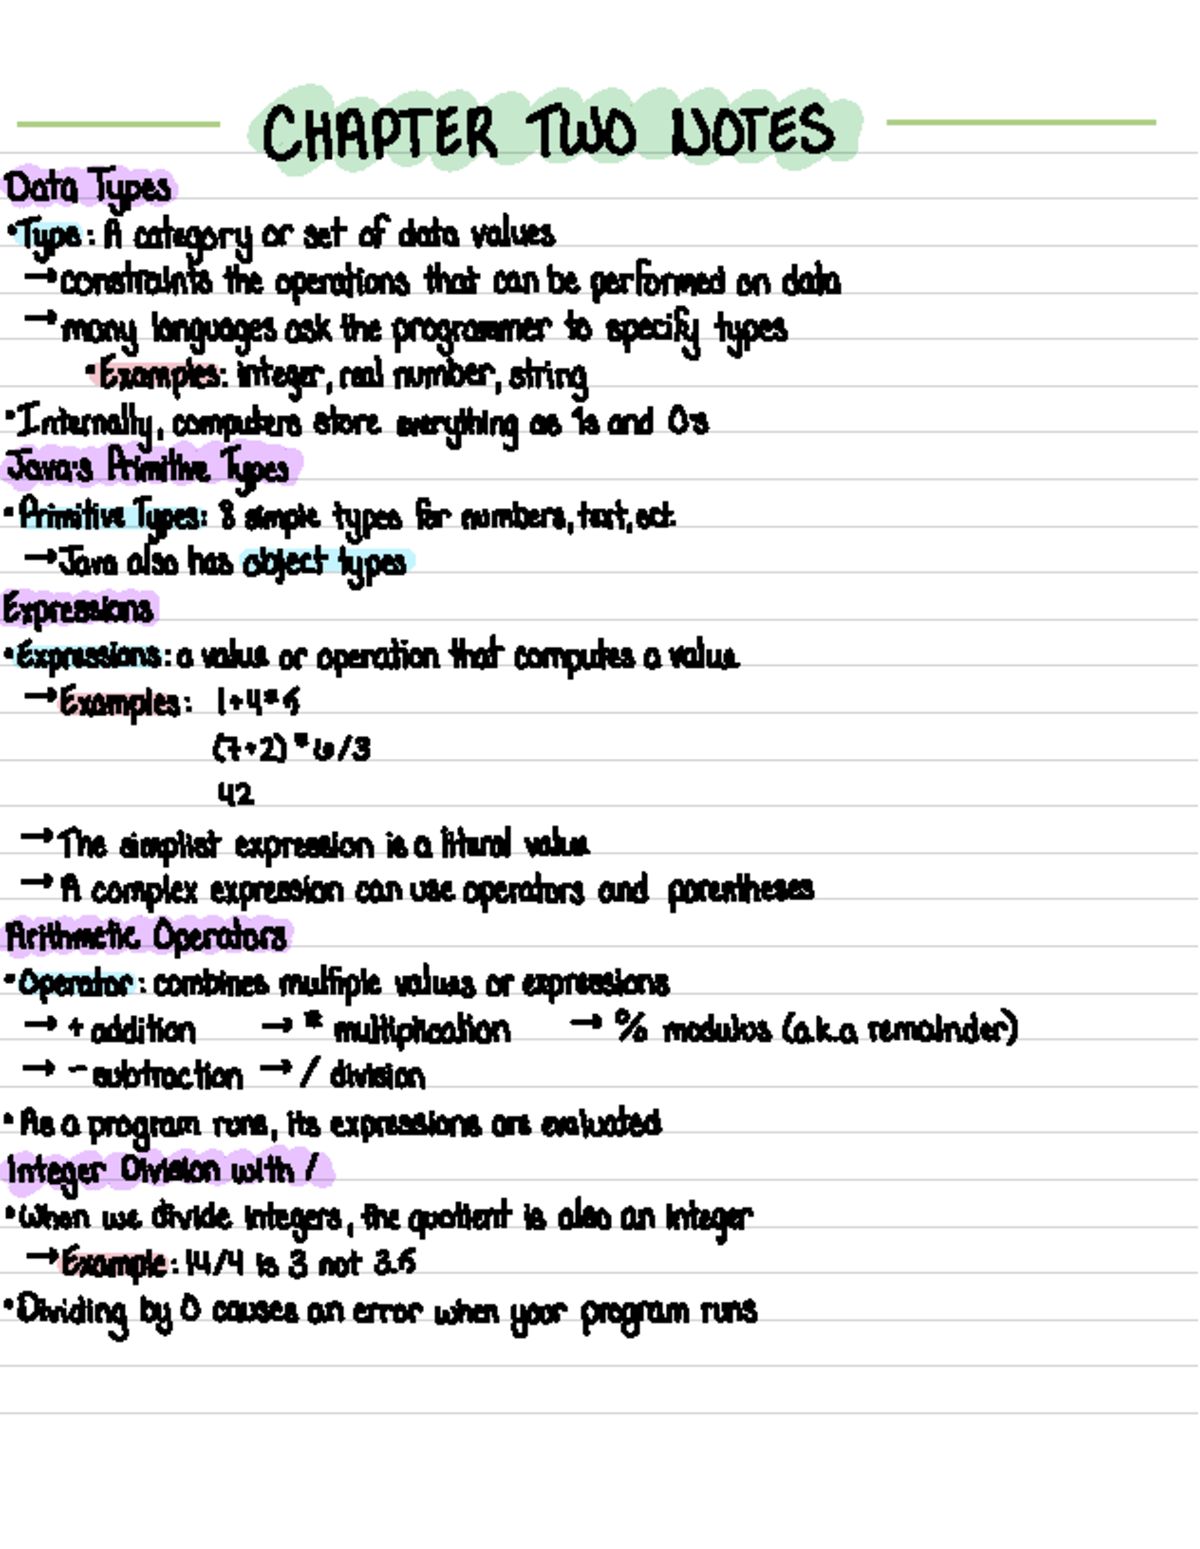 CHAPTER TWO NOTES
Data Types
•Type: A category or set of data values
→constraints the operations that can be performed on data
→many languages ask the programmer to specify types
•Examples: integer, real number, string
•Internally, computers store everything as 1s and 0s
Java's Primitive Types
•Primitive Types: 8 simple types for numbers, text, ect.
→Java also has object types
Expressions
•Expressions: a value or operation that computes a value
→Examples: 1+4*5
(7+2)*6/3
42
→The simplist expression is a litural value
→A complex expression can use operators and parentheses
Arithmetic Operators
•Operator: combines multiple values or expressions
→ + addition → * multiplication → % modulos (a.k.a remainder)
→ - subtraction → / division
•As a program runs, its expressions are evaluated
Integer Division with /
•When we divide integers, the quotient is also an integer
→Example: 14/4 is 3 not 3.5
•Dividing by 0 causes an error when your program runs